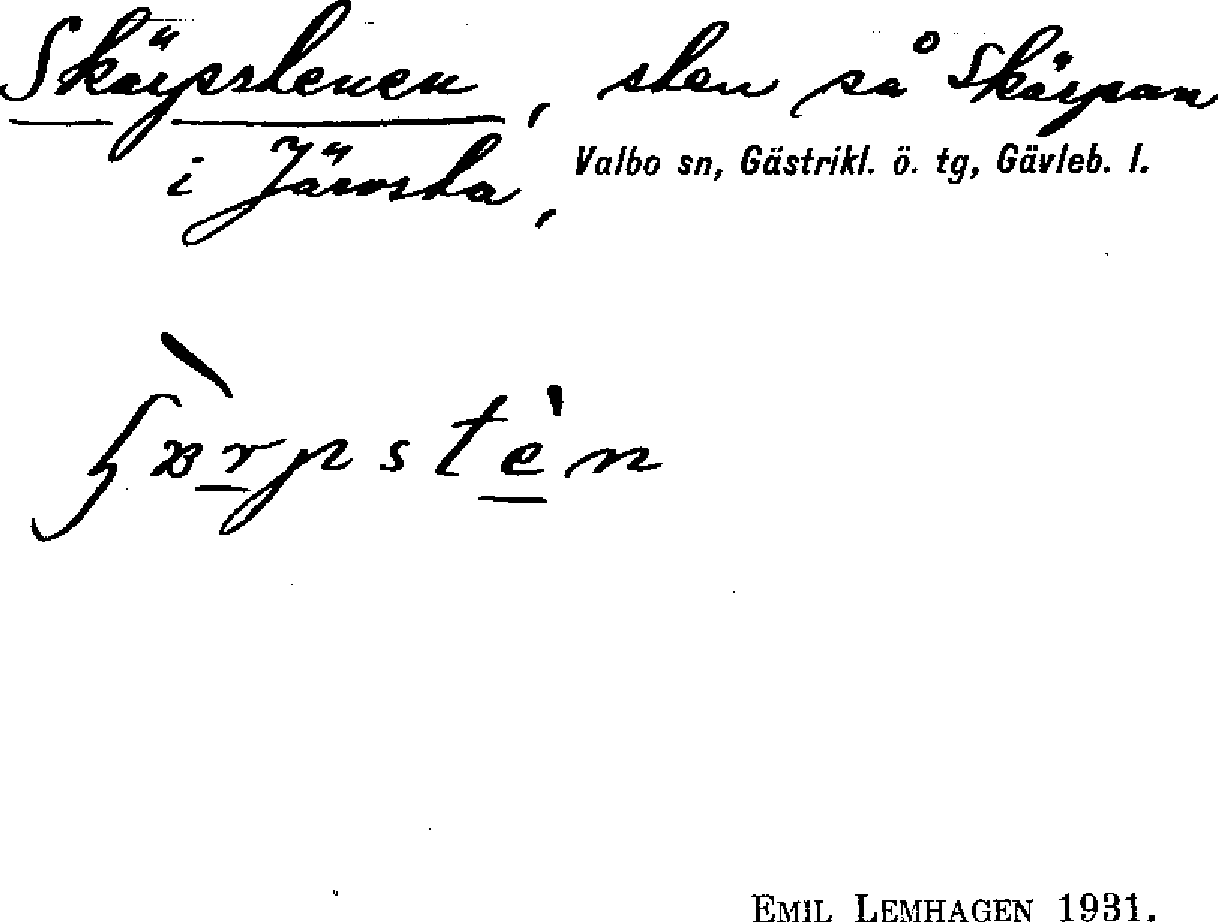 Skärpstenen, sten på Skärpan
i Järvsta, Valbo sn, Gästrikl. ö. tg, Gävleb. l.
ʃæ̀r̲pstè̲n
EMIL LEMHAGEN 1931.